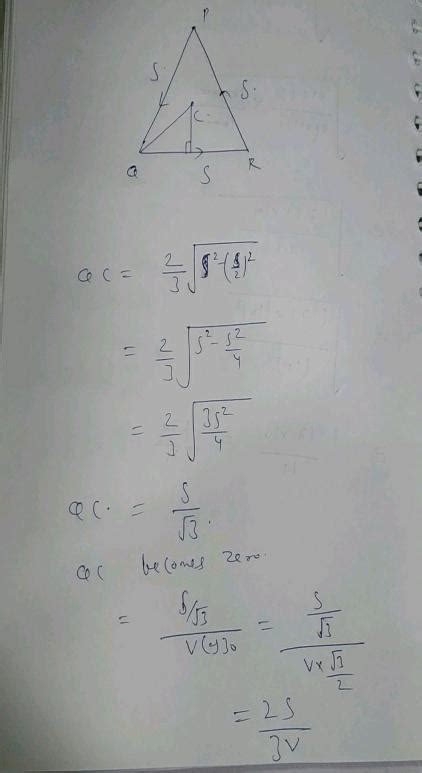 P
S.
S.
C.
Q
S
R
QC = 2/3 √(S² - (S/2)²)
= 2/3 √(S² - S²/4)
= 2/3 √(3S²/4)
QC. = S/√3.
QC becomes zero.
= (S/√3)/(V cos 30) = (S/√3)/(V × √3/2)
= 2S/3V